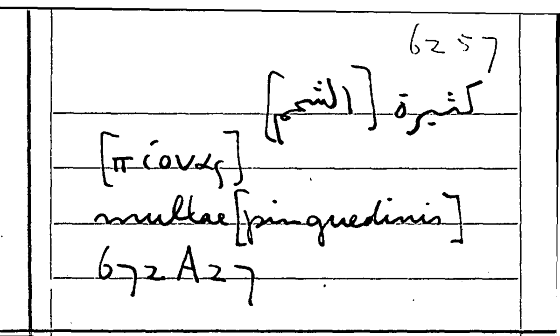 6257
كثيرة [الشحم]
[πίονας]
multae [pinguedinis]
672A27